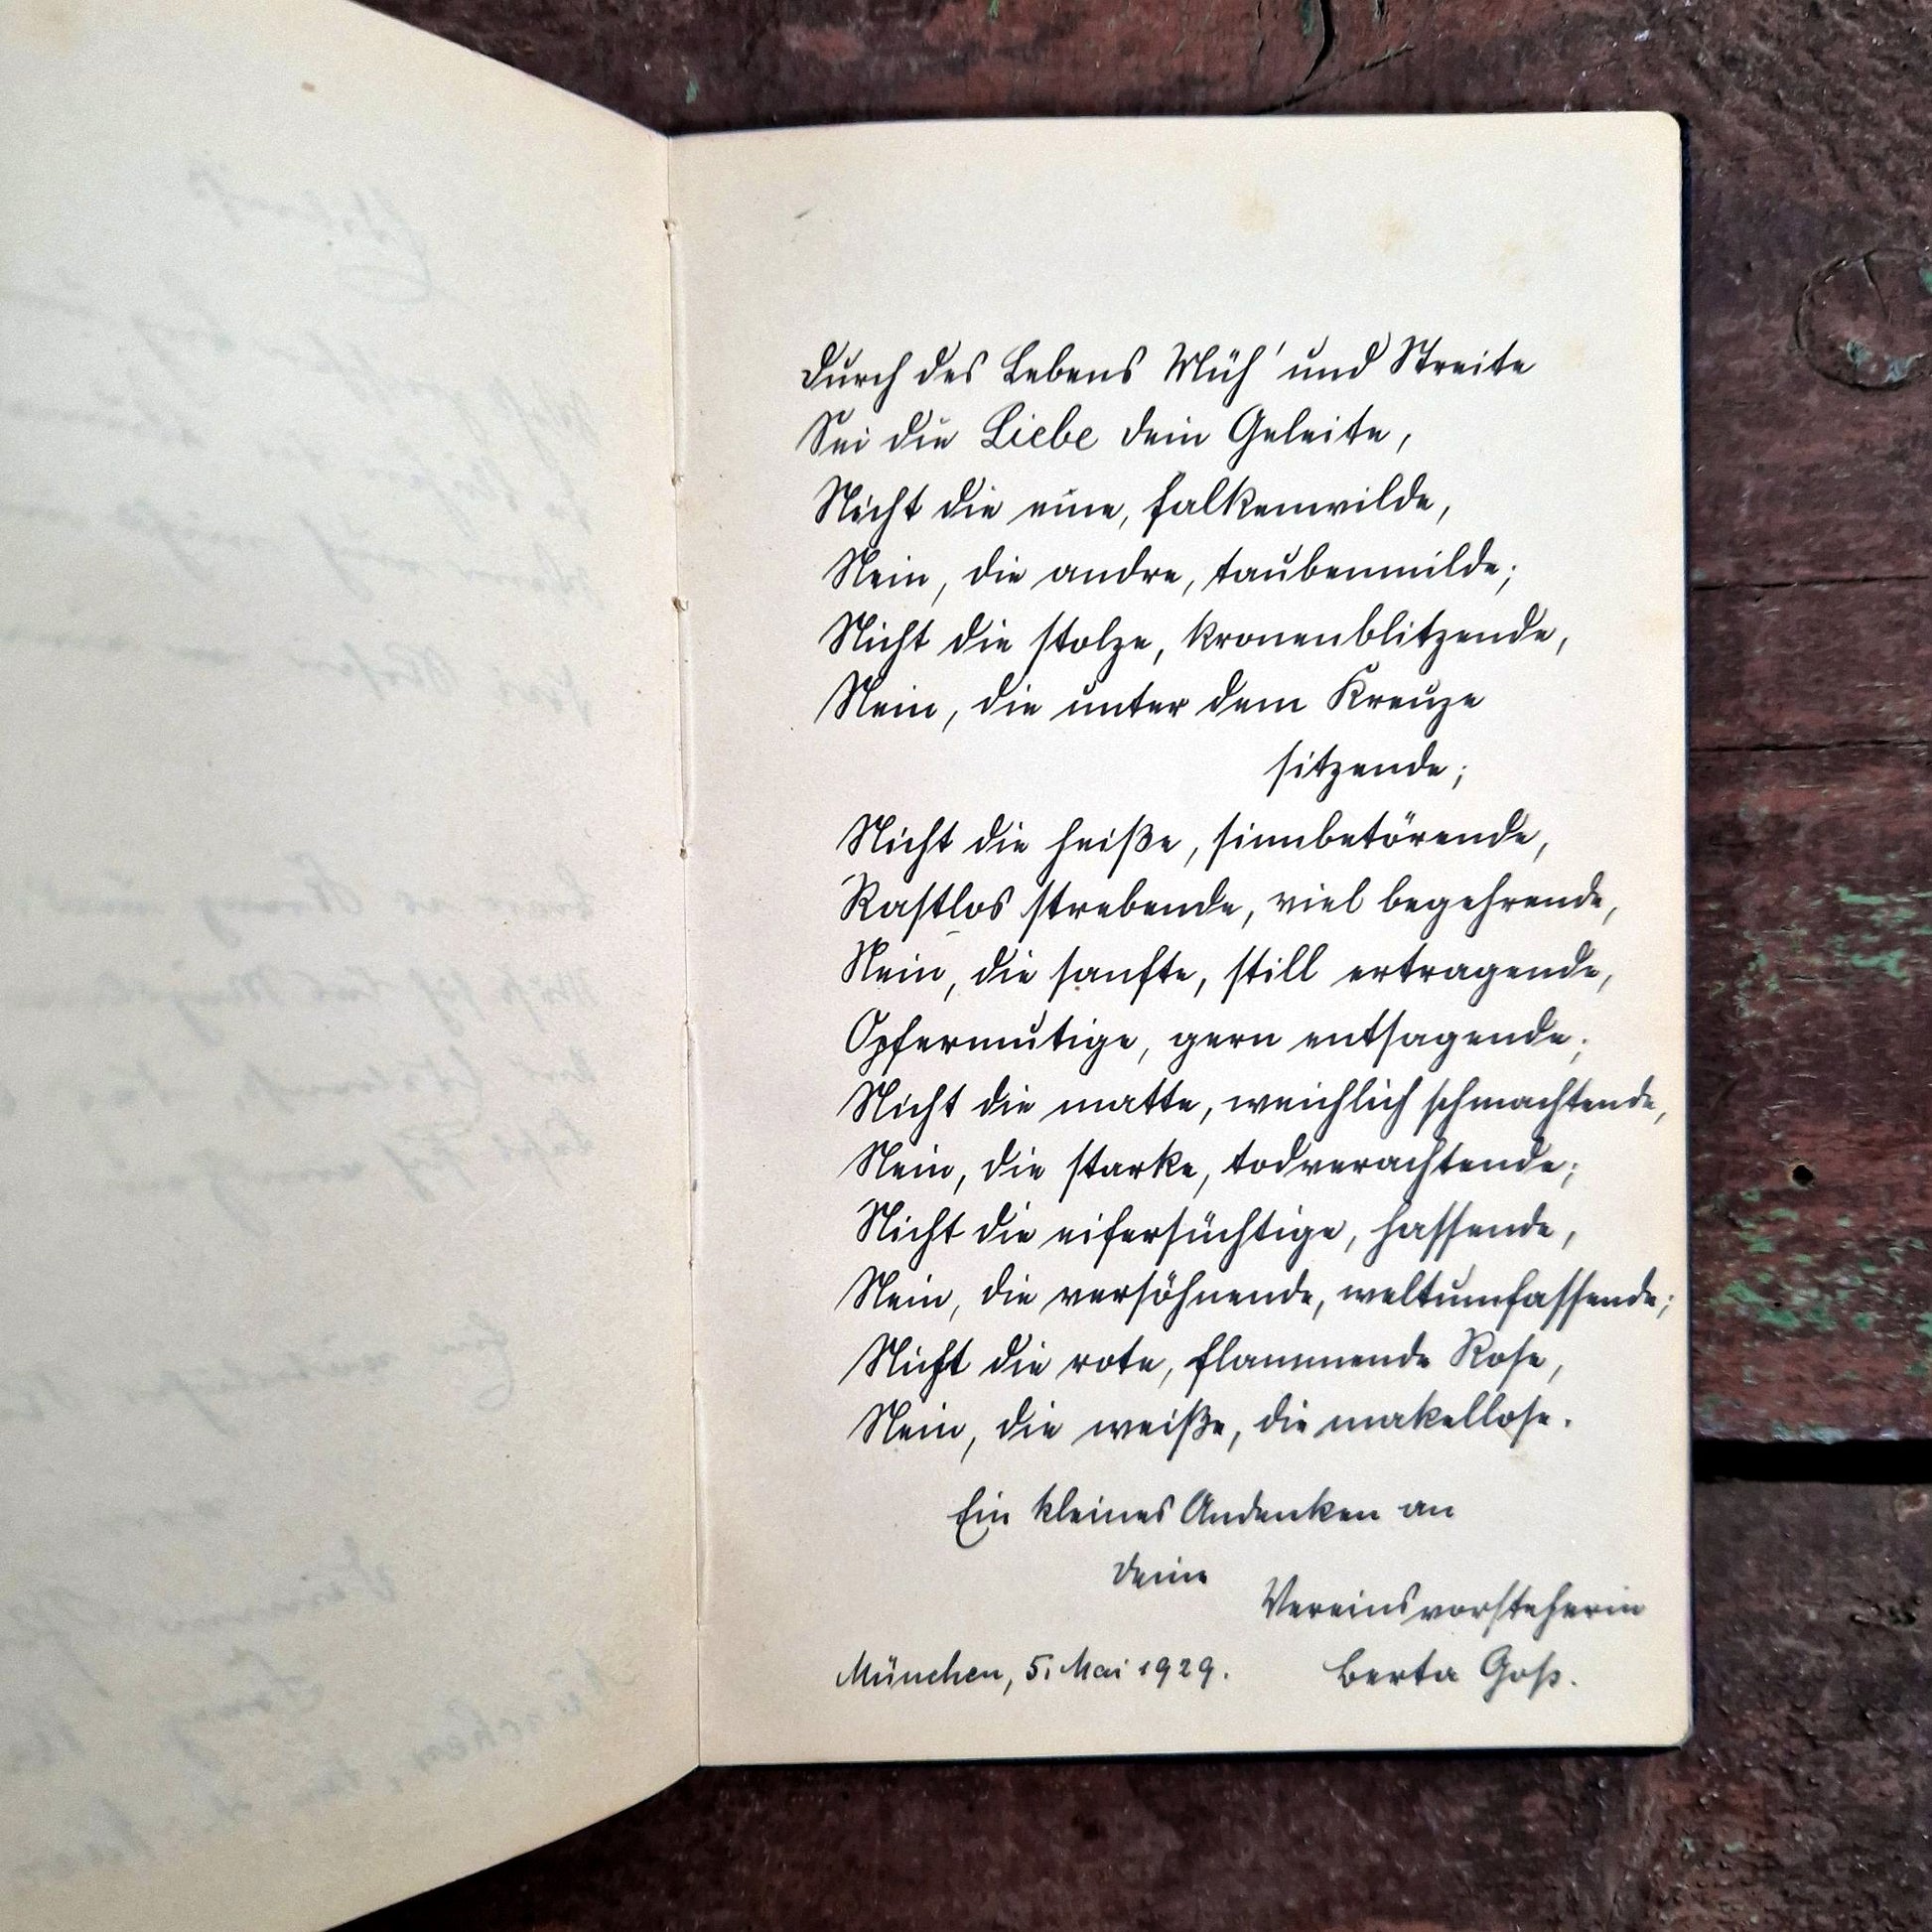 Durch des Lebens Müh' und Streite
Sei die Liebe dein Geleite,
Nicht die eine, falkenwilde,
Nein, die andre, taubenmilde;
Nicht die stolze, kronenblitzende,
Nein, die unter dem Kreuze
sitzende;
Nicht die heiße, sinnbetörende,
Rastlos strebende, viel begehrende,
Nein, die sanfte, still ertragende,
Opfermutige, gern entsagende;
Nicht die matte, weichlich schmachtende,
Nein, die starke, todverachtende;
Nicht die eifersüchtige, hassende,
Nein, die versöhnende, weltumfassende;
Nicht die rote, flammende Rose,
Nein, die weiße, die makellose.
Ein kleines Andenken an
deine
Vereinsvorsteherin
München, 5. Mai 1929. Berta Goß.